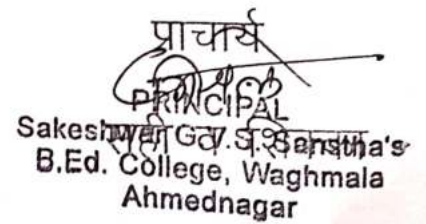 प्राचार्य
PRINCIPAL
Sakeshwar G.V.S. Sanstha's
सही व शिक्का
B.Ed. College, Waghmala
Ahmednagar